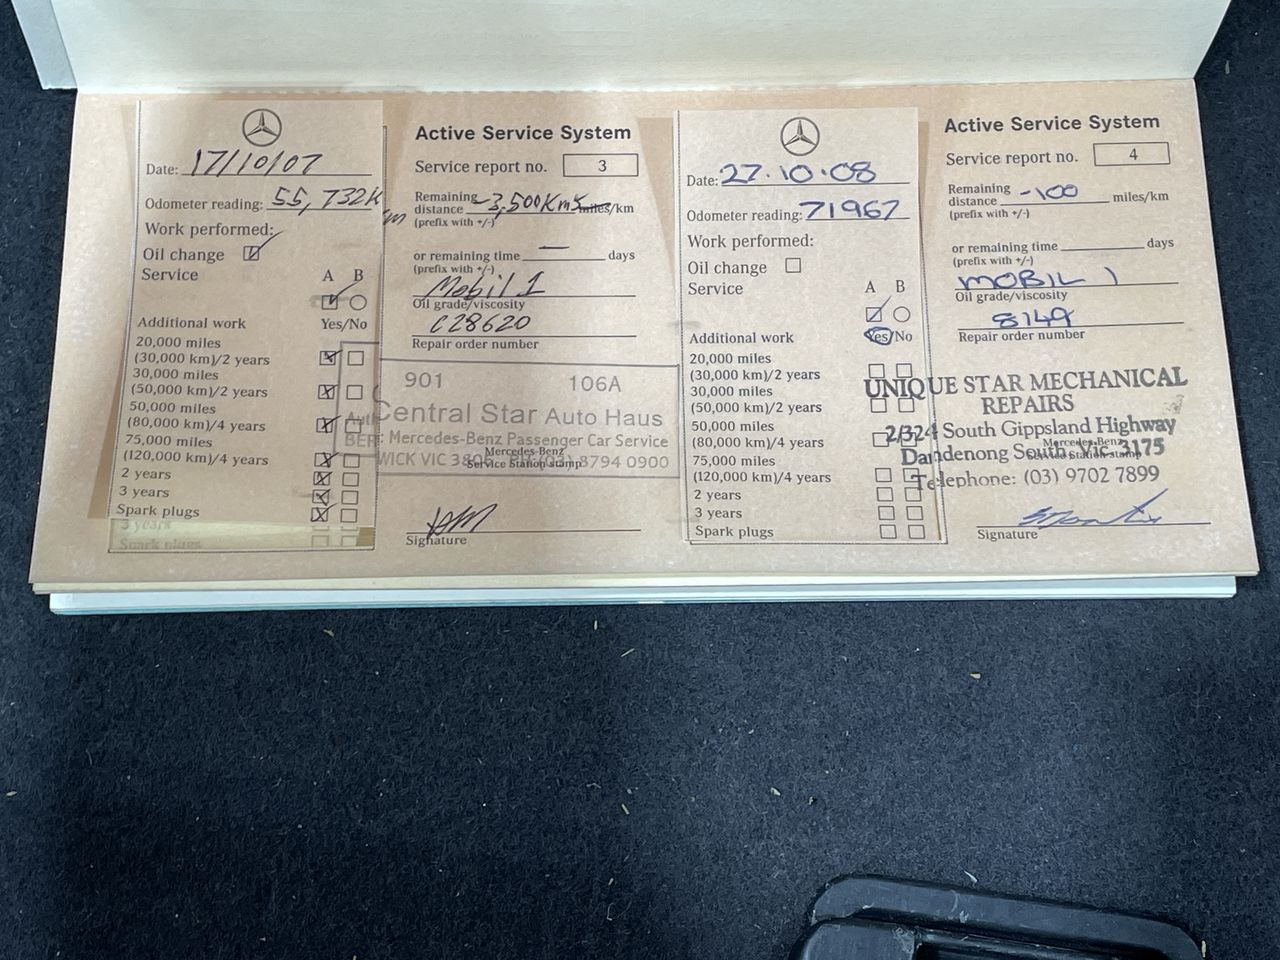 Date: 17/10/07
Odometer reading: 55,732K
km
Work performed:
Oil change
Service
A B
Additional work Yes/No
20,000 miles
(30,000 km)/2 years
30,000 miles
(50,000 km)/2 years
50,000 miles
(80,000 km)/4 years
75,000 miles
(120,000 km)/4 years
2 years
3 years
Spark plugs
3 years
Spark plugs
Active Service System
Service report no. 3
Remaining
distance -3,500Kms miles/km
(prefix with +/-)
or remaining time — days
(prefix with +/-)
Mobil 1
Oil grade/viscosity
C28620
Repair order number
901 106A
Central Star Auto Haus
Mercedes-Benz Passenger Car Service
Mercedes-Benz
Service Station stamp
WICK VIC (03) 8794 0900
Signature
Date: 27.10.08
Odometer reading: 71967
Work performed:
Oil change
Service
A B
Additional work Yes/No
20,000 miles
(30,000 km)/2 years
30,000 miles
(50,000 km)/2 years
50,000 miles
(80,000 km)/4 years
75,000 miles
(120,000 km)/4 years
2 years
3 years
Spark plugs
Active Service System
Service report no. 4
Remaining
distance -100 miles/km
(prefix with +/-)
or remaining time days
(prefix with +/-)
MOBIL 1
Oil grade/viscosity
8149
Repair order number
UNIQUE STAR MECHANICAL
REPAIRS
2/324 South Gippsland Highway
Mercedes-Benz
Dandenong South, Vic 3175
Service Station stamp
Telephone: (03) 9702 7899
Signature